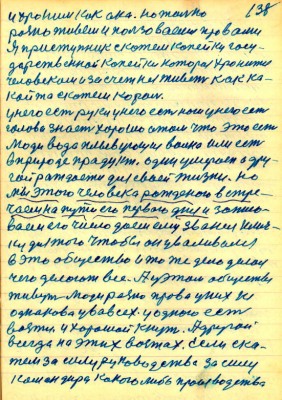 138
и хроним как ана. но только
разно живем и ползоваем провами
Я приступник скотем копейку госу-
дарственной копейки котора хронити
человекам и за счет ней живет как ка-
кой та скотем король.
у него ест руки у него ест ноги у него ест
голова знает хорошо о том что это ест
люди вода живевующи воина или ест
в природе продукт. один умирает а дру-
гой раждается для своей жизни. но
мы этого человека рожденого встре-
чаем на пути его первого дня и записо-
ваем его число даем ему звание
для того чтобы он уваливался
в это общество и то же дело делал
чего делают все. А у этом обществе
живут люди разно права у них не
однакова у вавсех. у одного ест
вожжи и хороший кнут. А другой
всегда на этих вожжах. если ска-
тем за силу руководства за силу
командира какого либо производства